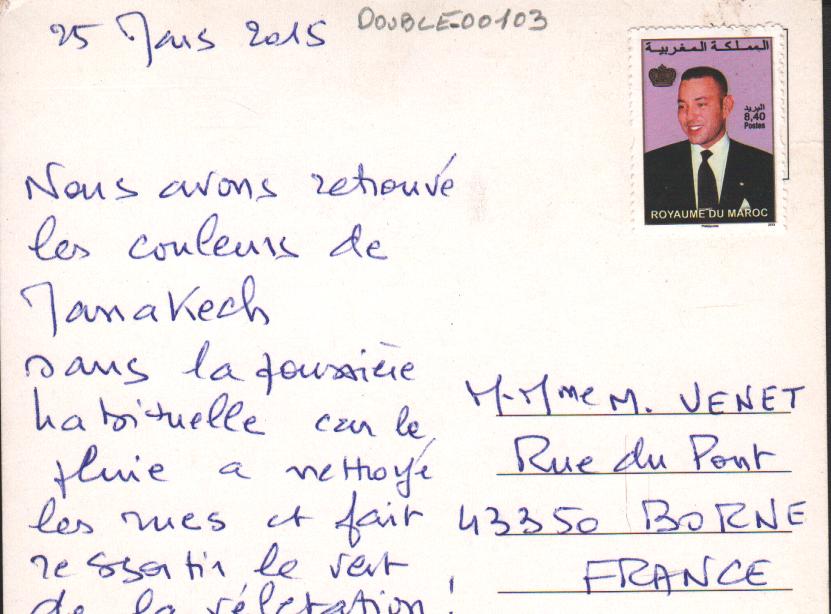 25 Mars 2015
DOUBLE-00103
المملكة المغربية
البريد
8,40
Postes
ROYAUME DU MAROC
Nous avons retrouvé
les couleurs de
Marrakech
sans la poussière
habituelle car la
pluie a nettoyé
les rues et fait
ressortir le vert
de la végétation !
M. Mme M. VENET
Rue du Pont
43350 BORNE
FRANCE